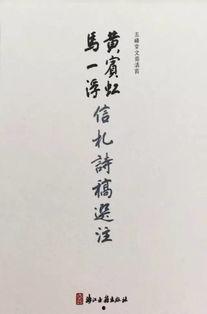 五峰堂文翁清酌
黃賓虹
馬一浮
信札詩稿選注
浙江古籍出版社